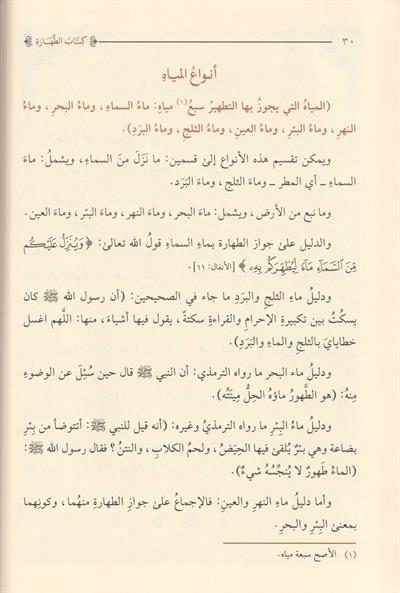 ٣٠ كِتَابُ الطَّهَارَةِ
أنواعُ المياهِ
(المياهُ التي يجوزُ بها التطهيرُ سبعُ(١) مياهٍ: ماءُ السماءِ، وماءُ البحرِ، وماءُ
النهرِ، وماءُ البئرِ، وماءُ العينِ، وماءُ الثلجِ، وماءُ البرَدِ).
ويمكن تقسيم هذه الأنواع إلىٰ قسمين: ما نَزَلَ منَ السماءِ، ويشملُ: ماءَ
السماءِ ــ أي المطر ــ وماءَ الثلجِ، وماءَ البَرَد.
وما نبع من الأرض، ويشمل: ماءَ البحر، وماءَ النهر، وماءَ البئر، وماءَ العين.
والدليل علىٰ جواز الطهارة بماءِ السماءِ قولُ الله تعالىٰ: ﴿وَيُنَزِّلُ عَلَيْكُم
مِّنَ ٱلسَّمَآءِ مَآءً لِّيُطَهِّرَكُم بِهِۦ﴾ [الأنفال: ١١].
ودليلُ ماءِ الثلجِ والبرَدِ ما جاء في الصحيحين: (أن رسول الله ﷺ كان
يسكُتُ بين تكبيرةِ الإحرامِ والقراءةِ سكتةً، يقول فيها أشياءَ، منها: اللَّهم اغسل
خطايايَ بالثلجِ والماءِ والبَرَدِ).
ودليلُ ماء البحر ما رواه الترمذي: أن النبي ﷺ قال حين سُئِلَ عن الوضوءِ
مِنهُ: (هو الطَّهورُ ماؤهُ الحِلُّ مِيتَتُه).
ودليلُ ماءُ البئرِ ما رواه الترمذيُّ وغيره: (أنه قيل للنبي ﷺ: أتتوضأ من بِئرِ
بضاعة وهي بئرٌ يُلقىٰ فيها الحِيَضُ، ولحمُ الكلابِ، والنتنُ؟ فقال رسول الله ﷺ:
(الماءُ طَهورٌ لا يُنَجِّسُهُ شيءٌ).
وأما دليلُ ماءِ النهرِ والعينِ: فالإجماعُ علىٰ جوازِ الطهارةِ منهُما، وكونِهما
بمعنىٰ البِئرِ والبحرِ.
(١) الأصح سبعة مياه.